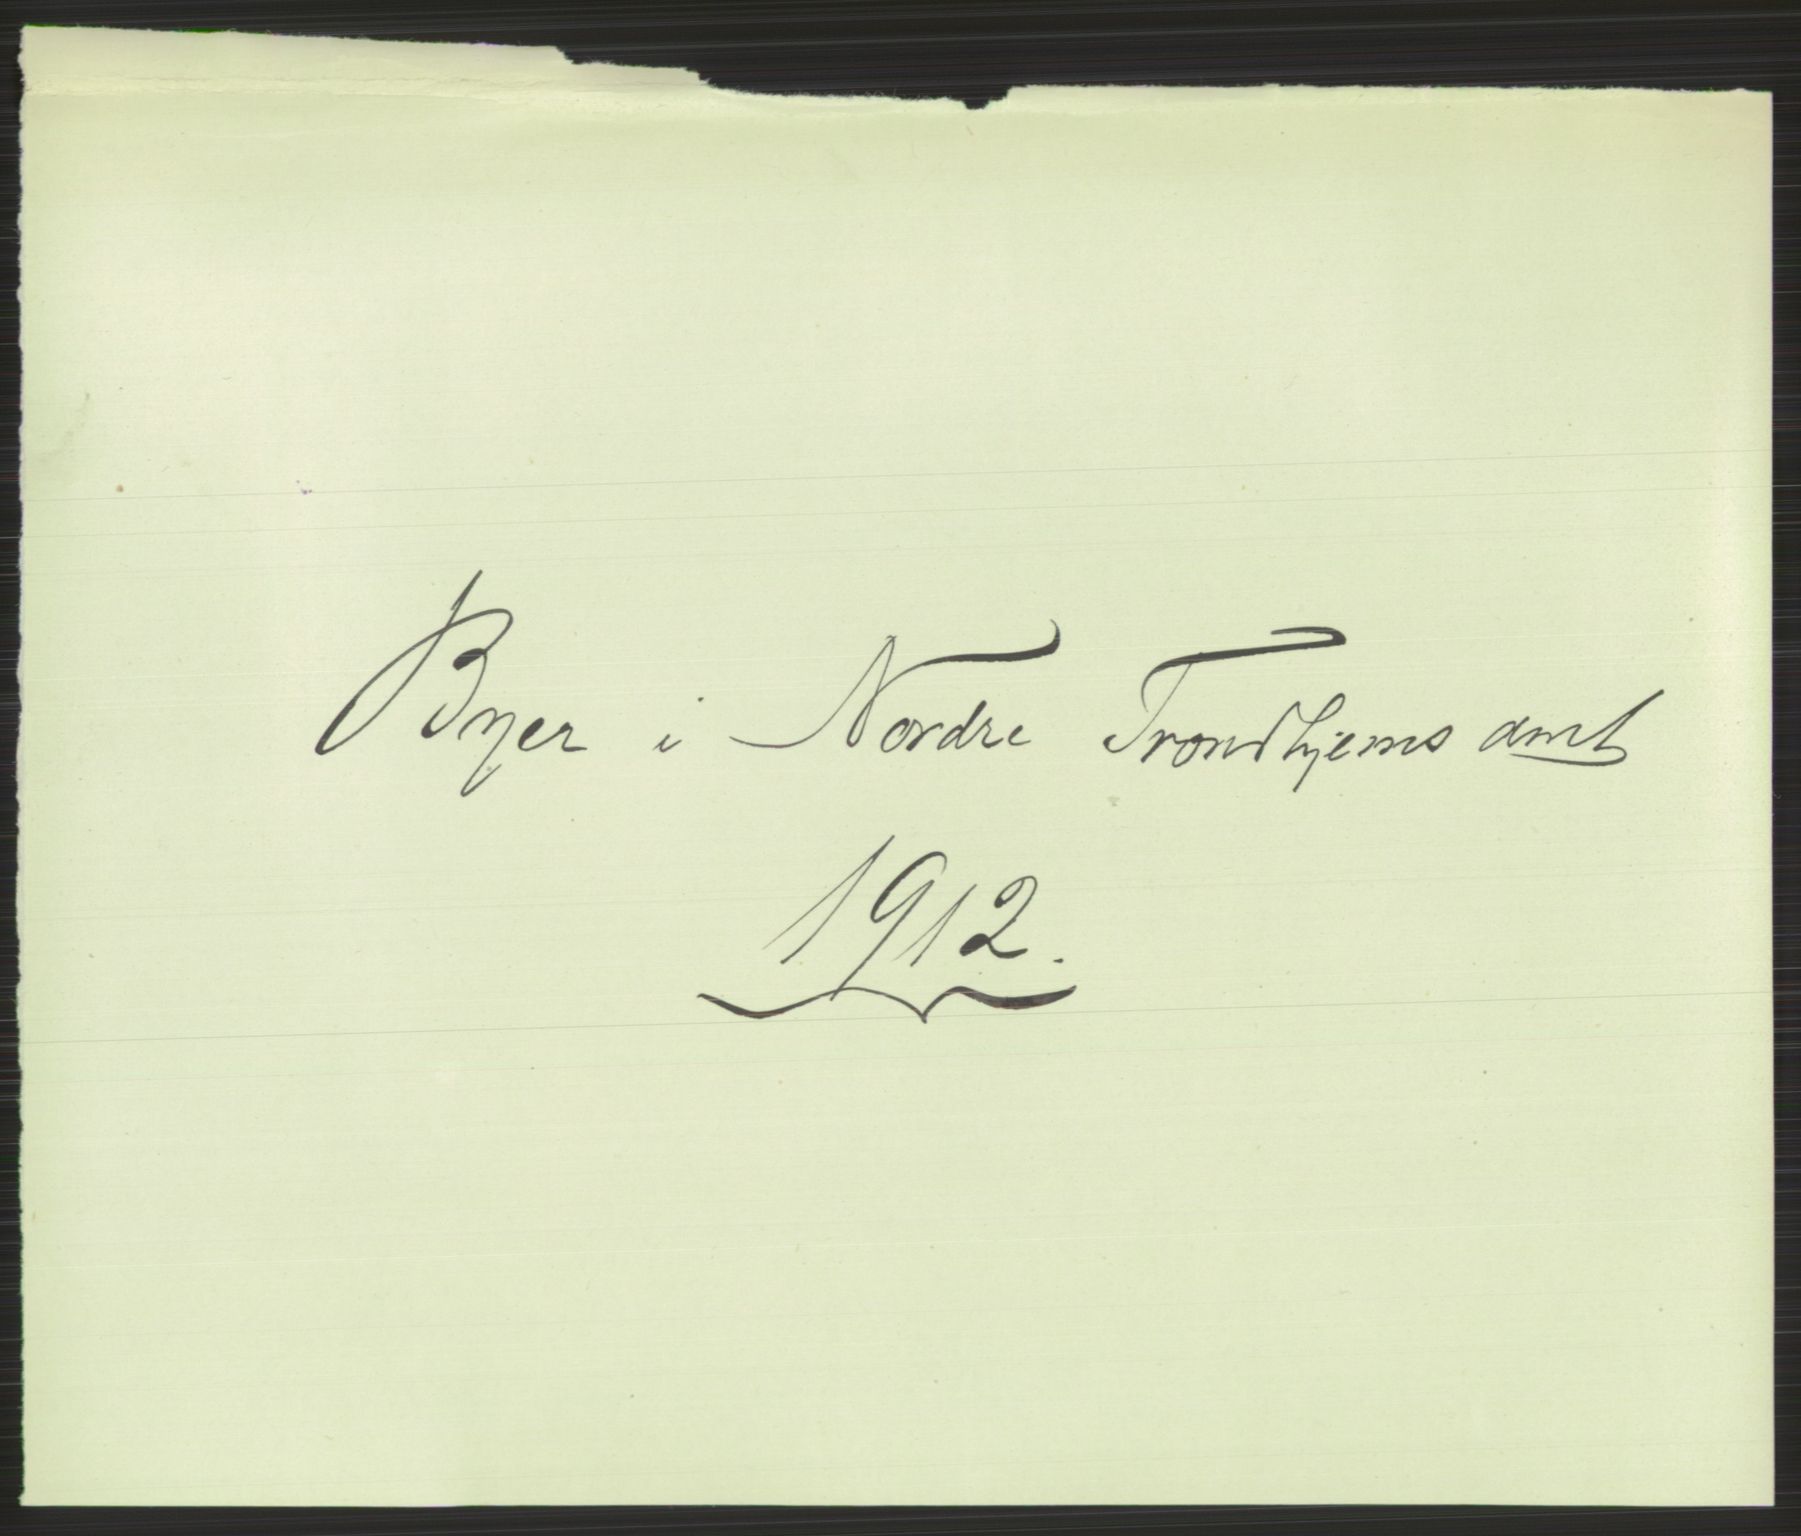 Byer i Nordre Trondhjems amt
1912.